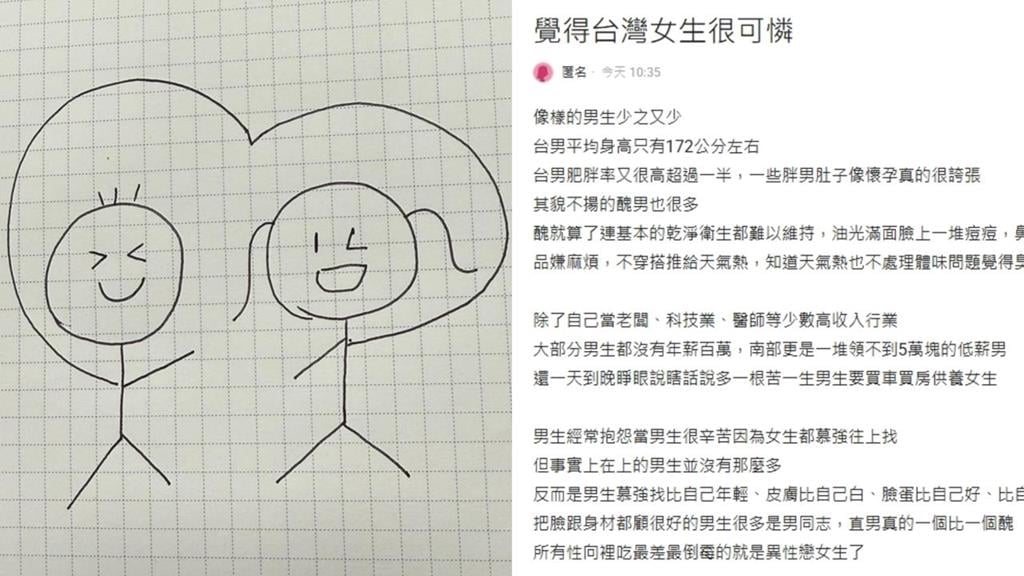 覺得台灣女生很可憐
匿名 · 今天 10:35
像樣的男生少之又少
台男平均身高只有172公分左右
台男肥胖率又很高超過一半，一些胖男肚子像懷孕真的很誇張
其貌不揚的醜男也很多
醜就算了連基本的乾淨衛生都難以維持，油光滿面臉上一堆痘痘，
品嫌麻煩，不穿搭推給天氣熱，知道天氣熱也不處理體味問題覺得
除了自己當老闆、科技業、醫師等少數高收入行業
大部分男生都沒有年薪百萬，南部更是一堆領不到5萬塊的低薪男
還一天到晚睜眼說瞎話說多一根苦一生男生要買車買房供養女生
男生經常抱怨當男生很辛苦因為女生都慕強往上找
但事實上在上的男生並沒有那麼多
反而是男生慕強找比自己年輕、皮膚比自己白、臉蛋比自己好、比自
把臉跟身材都顧很好的男生很多是男同志，直男真的一個比一個醜
所有性向裡吃最差最倒霉的就是異性戀女生了